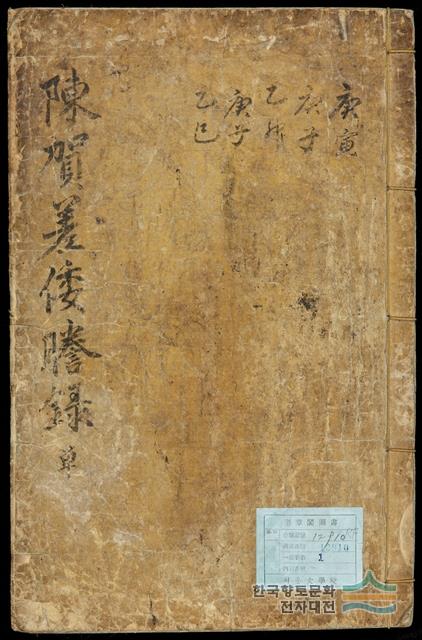 庚寅
庚
乙卯
庚子
乙巳
陳賀差倭謄錄 單
奎章閣圖書
12910
12910
1
서울大學校
한국향토문화
전자대전